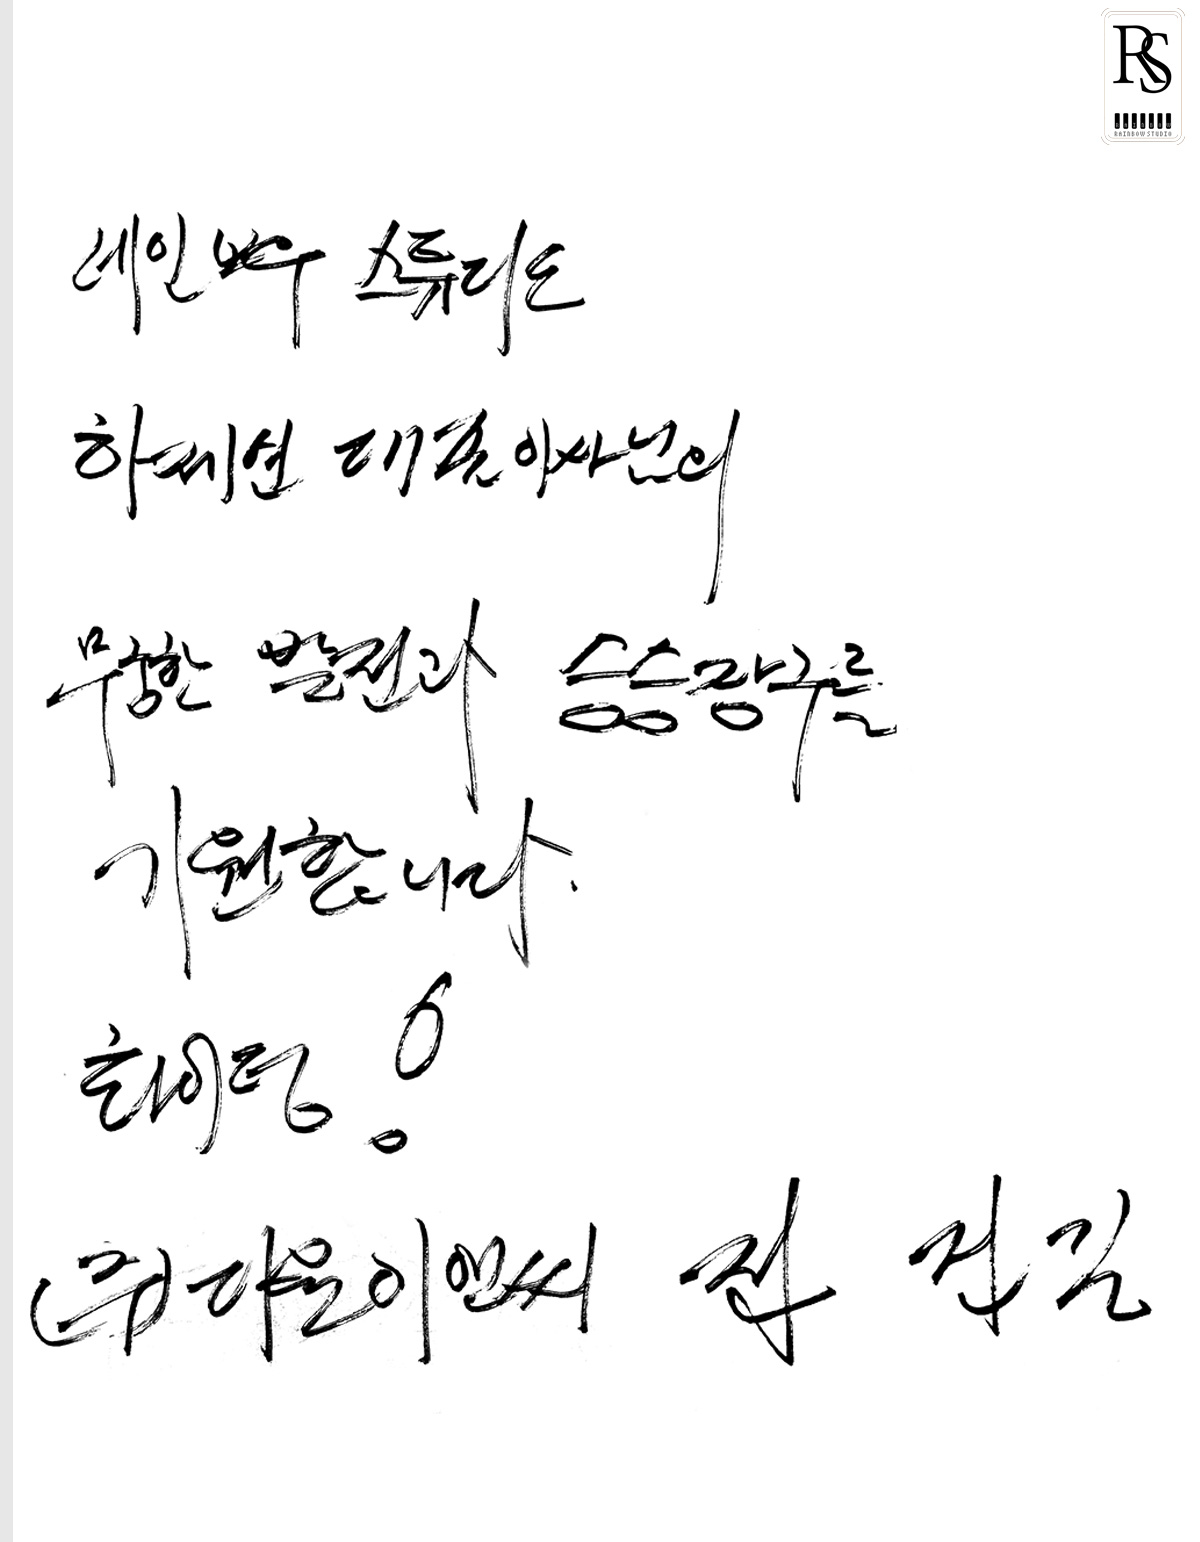 RS
RAINBOW STUDIO
레인보우 스튜디오
하제선 대표이사님의
무궁한 발전과 승승장구를
기원합니다.
화이팅!
(주)다온이앤씨